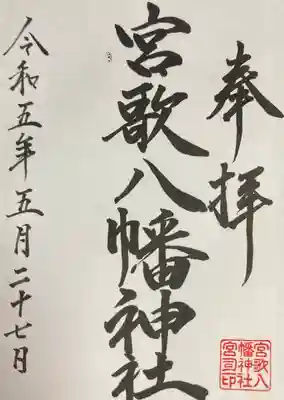 奉拝
宮歌八幡神社
令和五年五月二十七日
宮歌八
幡神社
宮司印